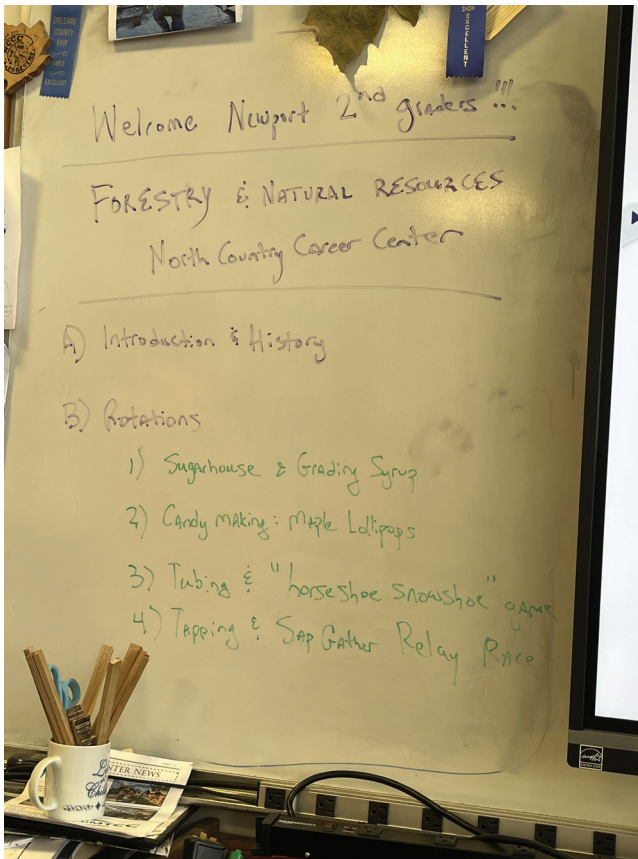 ORLEANS
COUNTY
FAIR
EXCELLENT
EXCELLENT
Welcome Newport 2nd graders !!!
FORESTRY & NATURAL RESOURCES
North Country Career Center
A) Introduction & History
B) Rotations
1) Sugarhouse & Grading Syrup
2) Candy making: Maple Lollipops
3) Tubing & "horseshoe snowshoe" game
4) Tapping & Sap Gather Relay Race
NTER NEWS